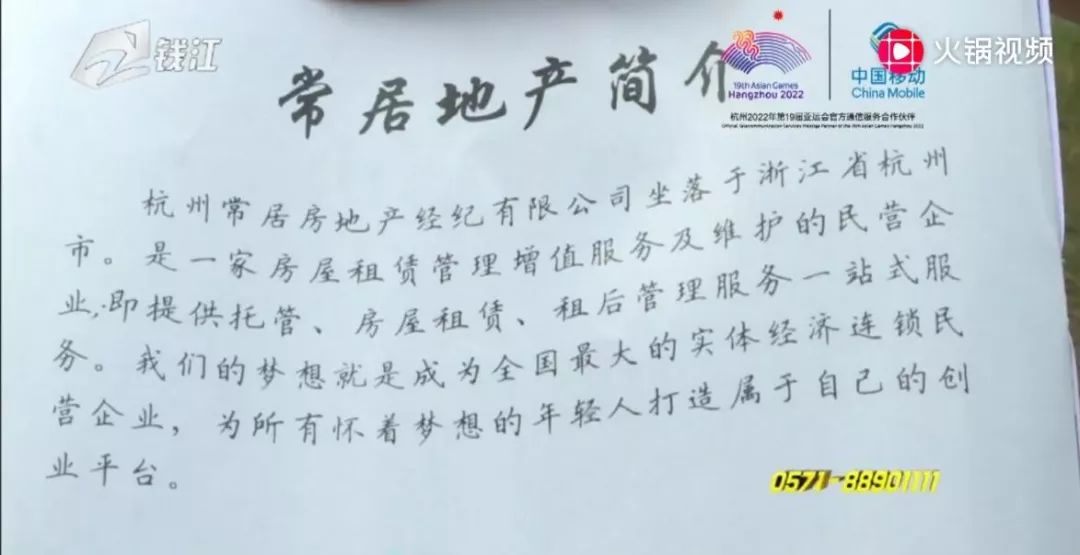 钱江
19th Asian Games
Hangzhou 2022
中国移动
China Mobile
火锅视频
杭州2022年第19届亚运会官方通信服务合作伙伴
Official Telecommunication Services Prestige Partner of the 19th Asian Games Hangzhou 2022
常居地产简介
杭州常居房地产经纪有限公司坐落于浙江省杭州
市。是一家房屋租赁管理增值服务及维护的民营企
业,即提供托管、房屋租赁、租后管理服务一站式服
务。我们的梦想就是成为全国最大的实体经济连锁民
营企业，为所有怀着梦想的年轻人打造属于自己的创
业平台。
0571-88901111